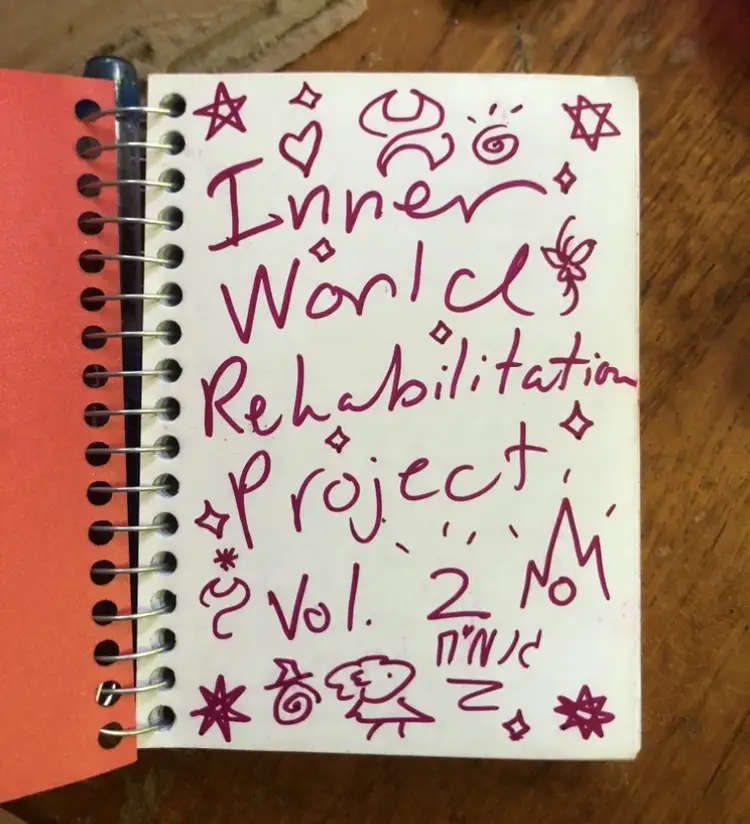 Inner
World
Rehabilitation
Project
Vol. 2